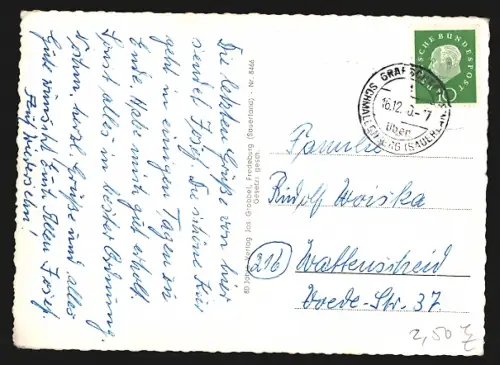 Die letzten Grüße von hier
sendet Josef. Die schöne Kur
geht in einigen Tagen zu
Ende. Habe mich gut erholt.
Sonst alles in bester Ordnung.
Nochm. herzl. Grüße und alles
Gute wünscht Euch Allen Josef.
Auf Wiedersehn!
Jos. Grobbel, Fredeburg (Sauerland) - Nr. 8466
Gesetzl. gesch.
DEUTSCHE BUNDESPOST
GRAFSCHAFT
16.12. -7
über
SCHMALLENBERG (SAUERL)
Familie
Rudolf Woiska
(216) Wattenscheid
Voede-Str. 37.
2,50